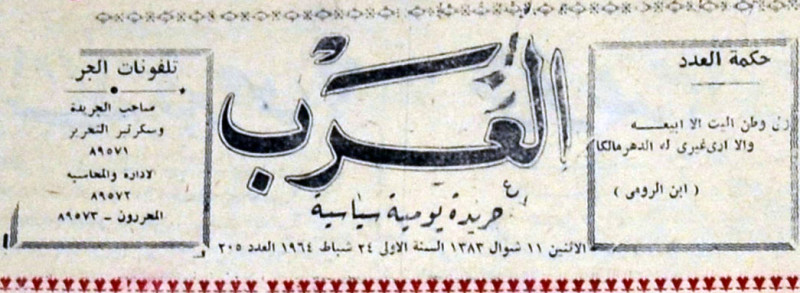 حكمة العدد
وطن اليت الا ابيعـــه
والا ارى غيرى له الدهر مالكا
( ابن الرومى )
العرب
جريدة يومية سياسية
الاثنين ١١ شوال ١٣٨٣ السنة الاولى ٢٤ شباط ١٩٦٤ العدد ٢٠٥
تلفونات الجر
صاحب الجريدة
وسكرتير التحرير
٨٩٥٧١
الادارة والمحاسبه
٨٩٥٧٢
المحررون - ٨٩٥٧٣